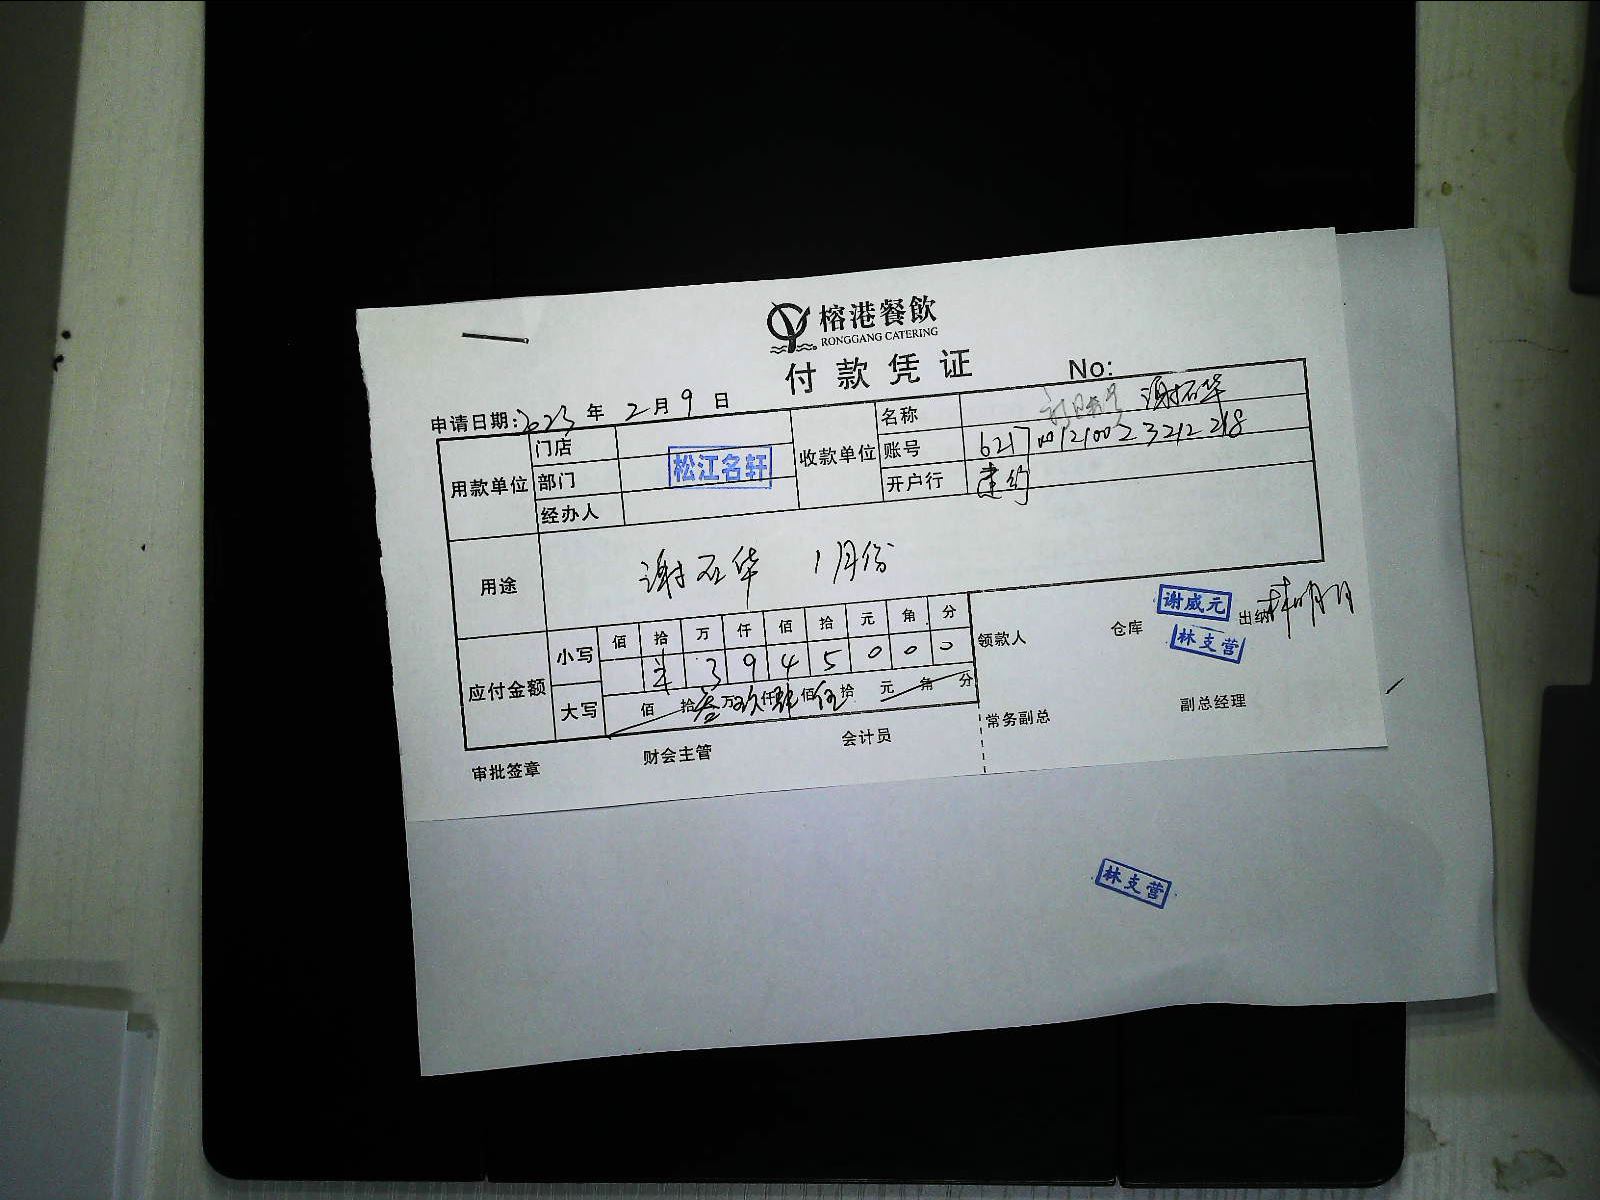 榕港餐飲
RONGGANG CATERING
付款凭证
No:
申请日期:2023年2月9日
用款单位 门店
部门
经办人
松江名轩
收款单位 名称 谢石华
账号 6217001210023212218
开户行 建行
用途 谢石华 1月份
应付金额 小写 佰 拾 万 仟 佰 拾 元 角 分
¥ 3 9 4 5 0 0 0
大写 佰 拾 叁 万 玖 仟 肆 佰 伍 拾 元 角 分
领款人 仓库 谢威元 林支营 出纳
审批签章 财会主管 会计员 常务副总 副总经理
林支营